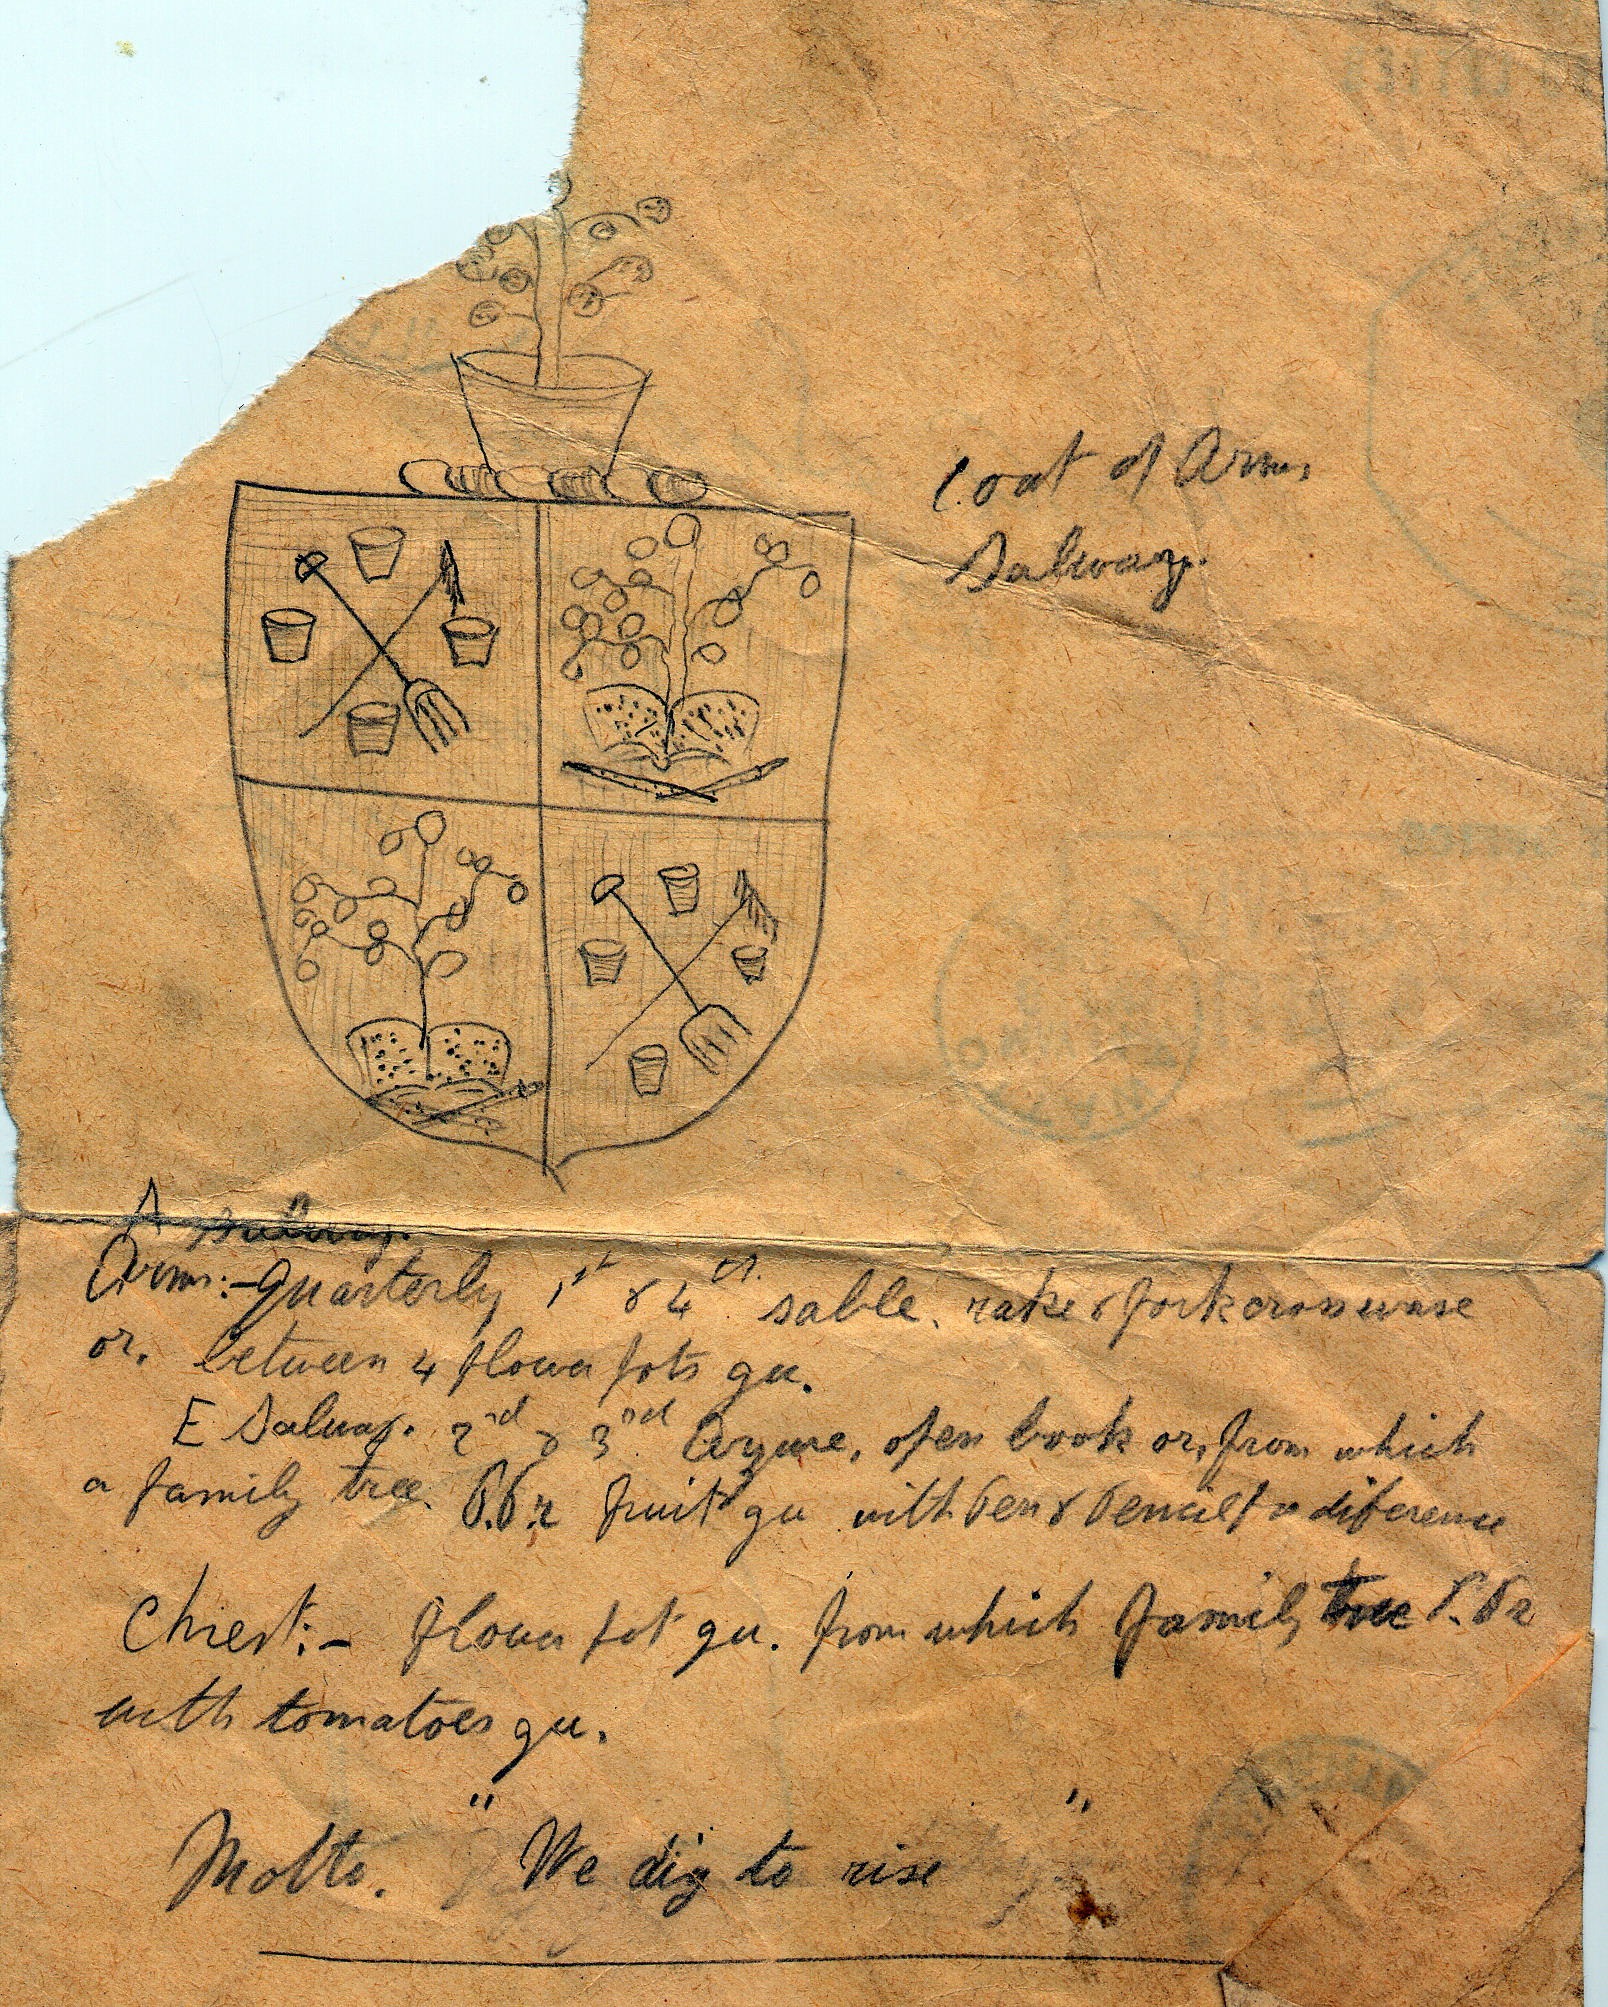 Coat of Arms
Salway.
A Salway.
Arms:- Quarterly 1st & 4th. sable. rake & fork crosswise
or. between 4 flower pots gu.
E Salway. 2nd & 3rd Azure, open book or, from which
a family tree. P.Pr fruit gu with Pen & Pencil for diference
Chrest:- flower pot gu. from which family tree P.Pr
with tomatoes gu.
Motto. "We dig to rise"